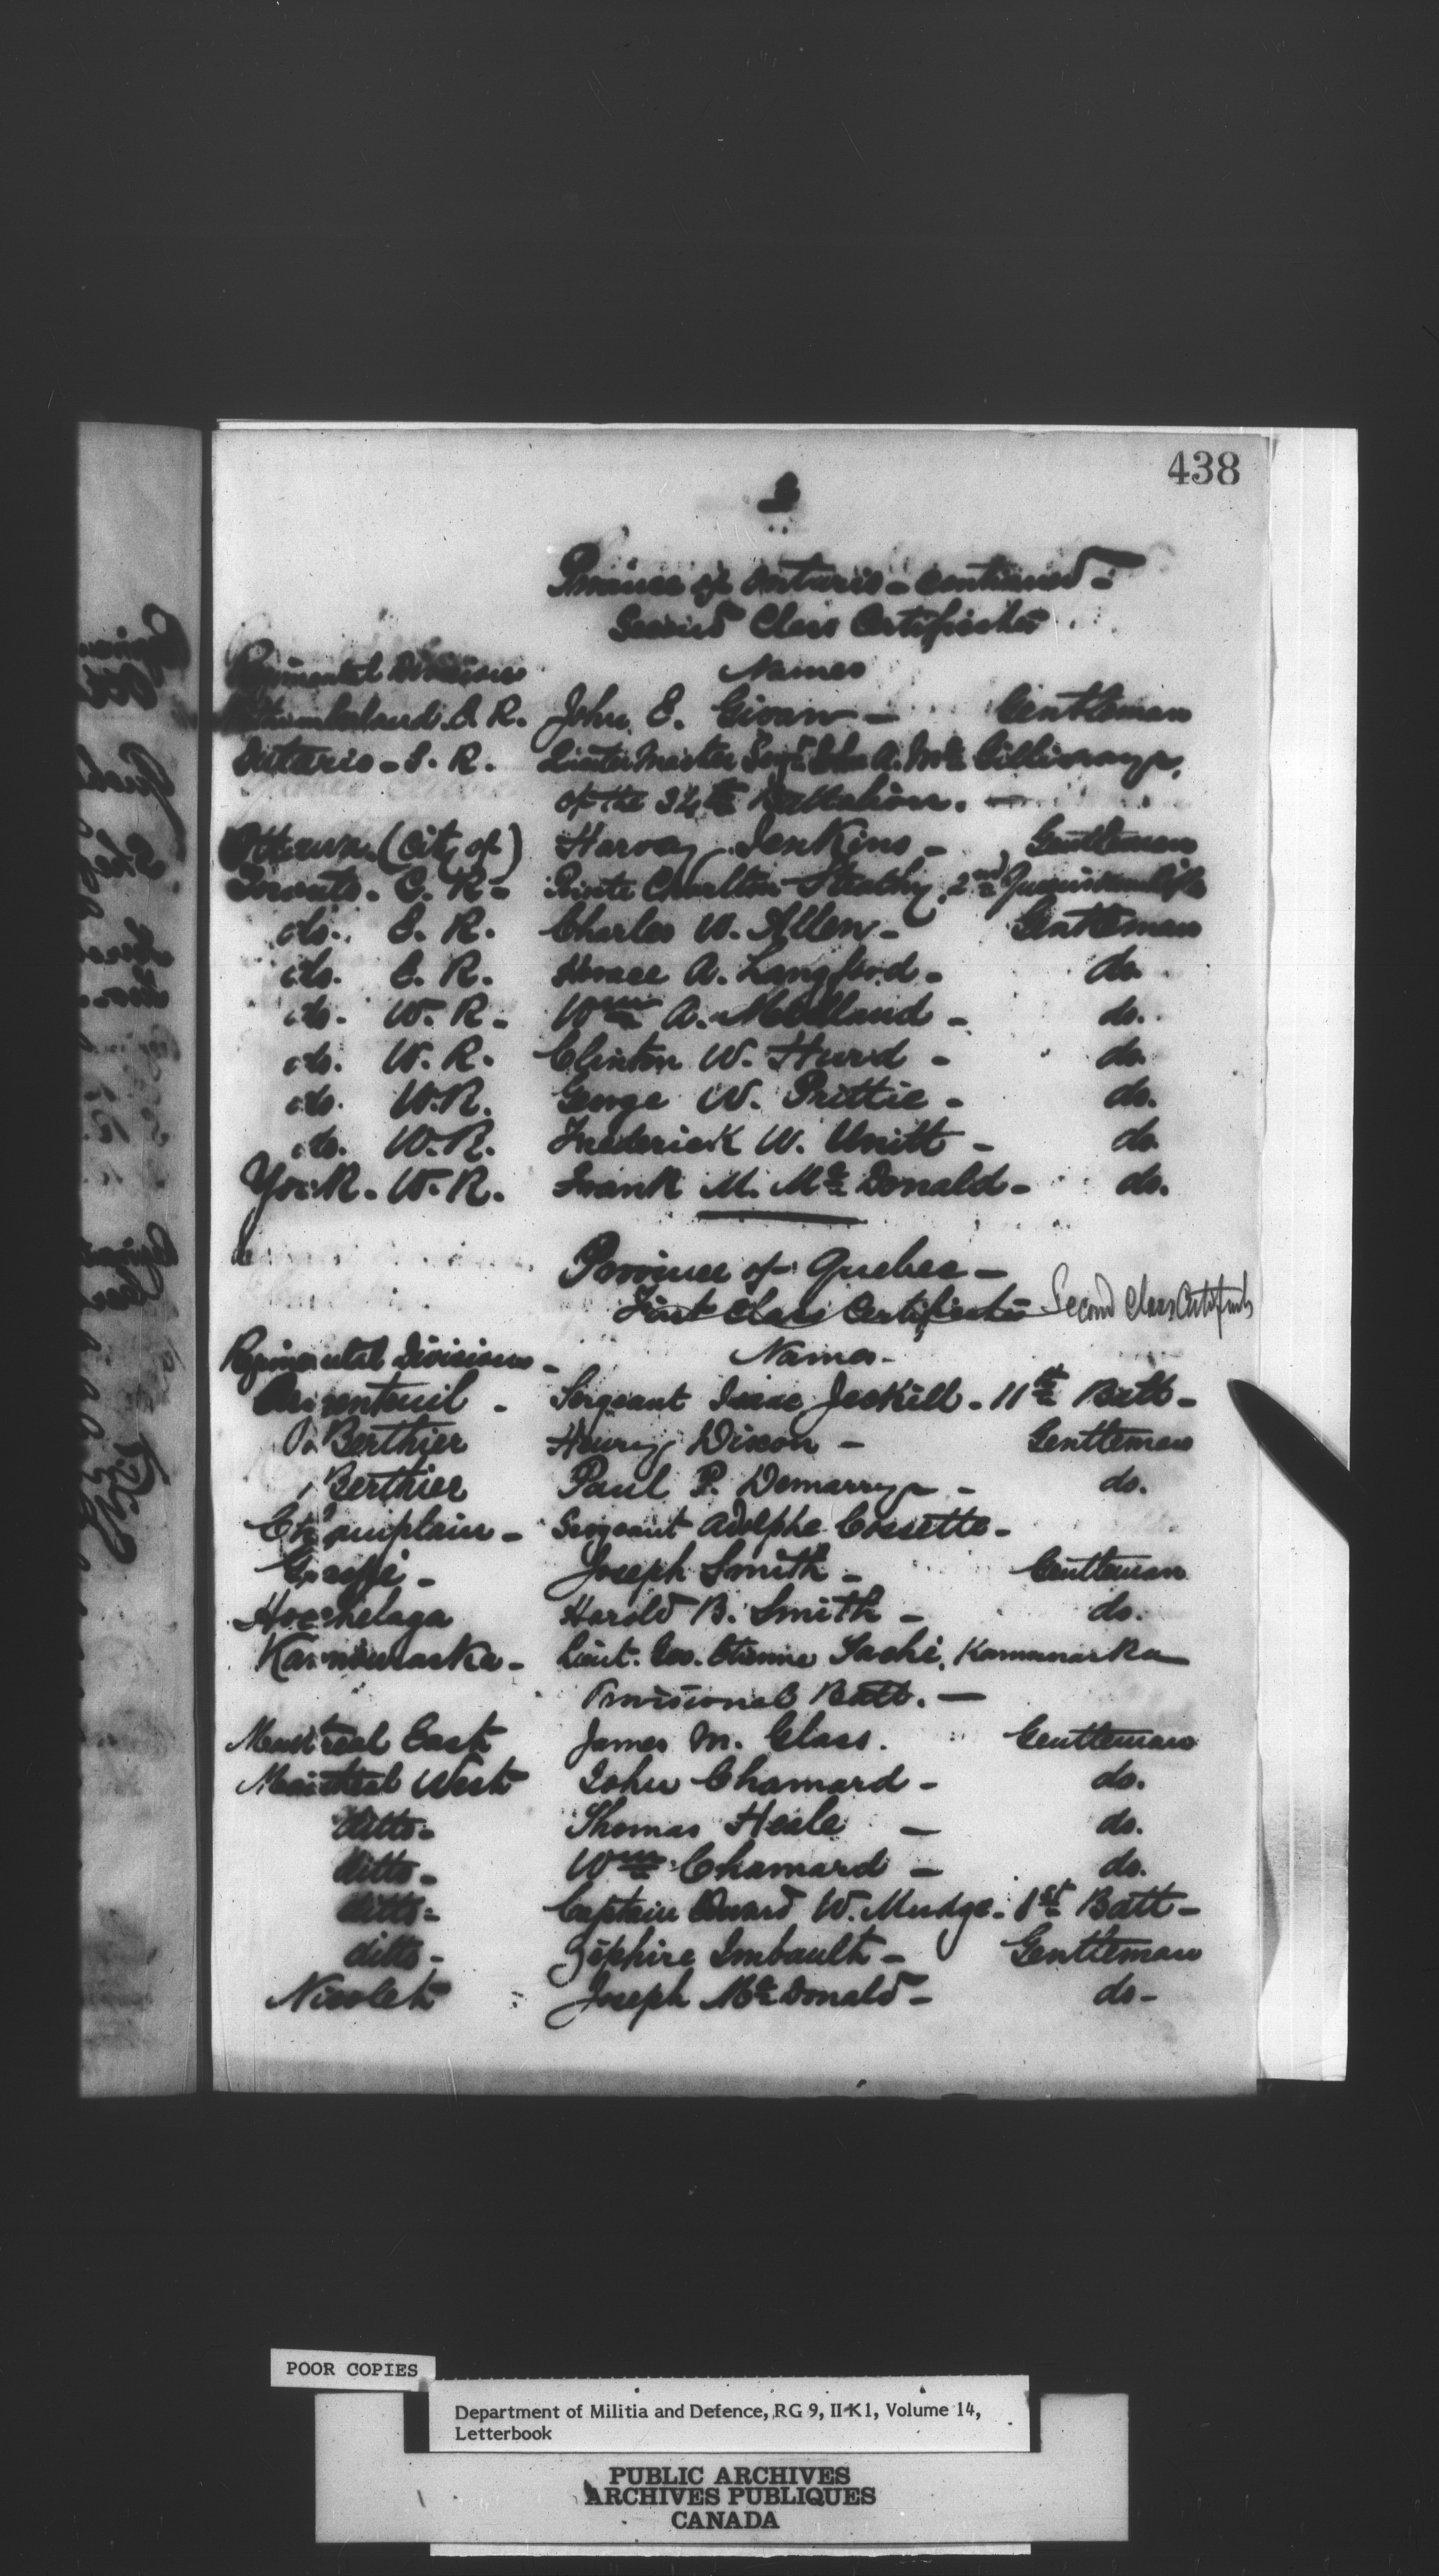 438
Province of Ontario - continued -
Second Class Certificates
Regimental Divisions Names
Northumberland. E. R. John E. Givan - Gentleman
Ontario - S. R. Quarter Master Sergt John A. Mc Gillivray,
of the 34th Battalion. -
Ottawa (City of) Harvey Jenkins - Gentleman
Toronto - C. R. - Private Charlton Strathy, 2nd Queens Own Rifles
do. E. R. Charles W. Allen - Gentleman
do. E. R. Horace A. Langford - do.
do. W. R. - Wm A. Medland - do.
do. W. R. Clinton W. Hurd - do.
do. W. R. George W. Prittie - do.
do. W. R. Frederick W. Unitt - do.
York - W. R. Frank M. Mc Donald - do.
Province of Quebec -
First Class Certificates Second Class Certificates
Regimental Divisions - Names -
Argenteuil - Sergeant Isaac Jeckill - 11th Batt -
Berthier Henry Dixon - Gentleman
Berthier Paul P. Demarry - do.
Champlain - Sergeant Adolphe Cossette -
Gaspé - Joseph Smith - Gentleman
Hochelaga Harold B. Smith - do.
Kamouraska - Lieut. Geo. Etienne Taché, Kamouraska
Provisional Batt. -
Montreal East James M. Glass. Gentleman
Montreal West John Chamard - do.
ditto - Thomas Heale - do.
ditto - Wm Chamard - do.
ditto - Captain Edward W. Mudge - 1st Batt -
ditto - Zéphire Imbault - Gentleman
Nicolet Joseph Mc Donald - do -
POOR COPIES
Department of Militia and Defence, RG 9, II-K1, Volume 14,
Letterbook
PUBLIC ARCHIVES
ARCHIVES PUBLIQUES
CANADA